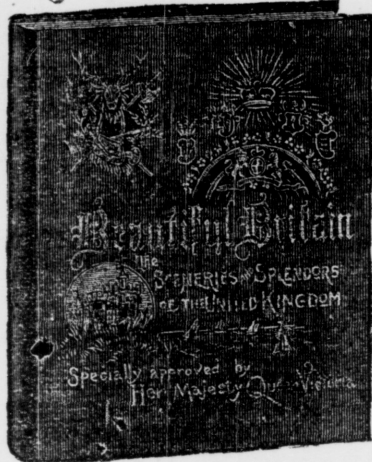 Beautiful Britain
The
SCENERIES AND SPLENDORS
OF THE UNITED KINGDOM
Specially approved by
Her Majesty Queen Victoria